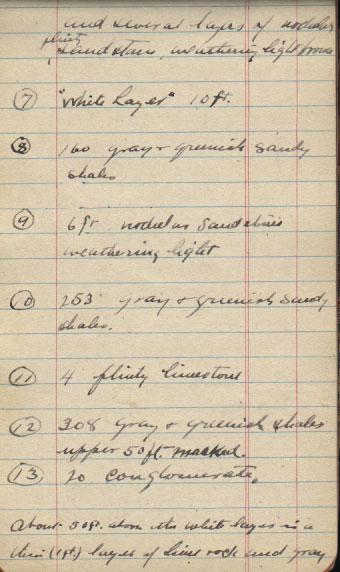 and several layers of nodular
flinty
sandstone, weathering light brown
⑦ "White Layer" 10 ft.
⑧ 160 gray & greenish sandy
shales
⑨ 6 ft nodular sandstone
weathering light
⑩ 253 gray & greenish sandy
shales.
⑪ 4 flinty limestone
⑫ 308 gray & greenish shales
upper 50 ft. masked.
⑬ 20 conglomerate.
About 50 ft. above the white layer is a
thin (1 ft.) layer of lime rock and gray